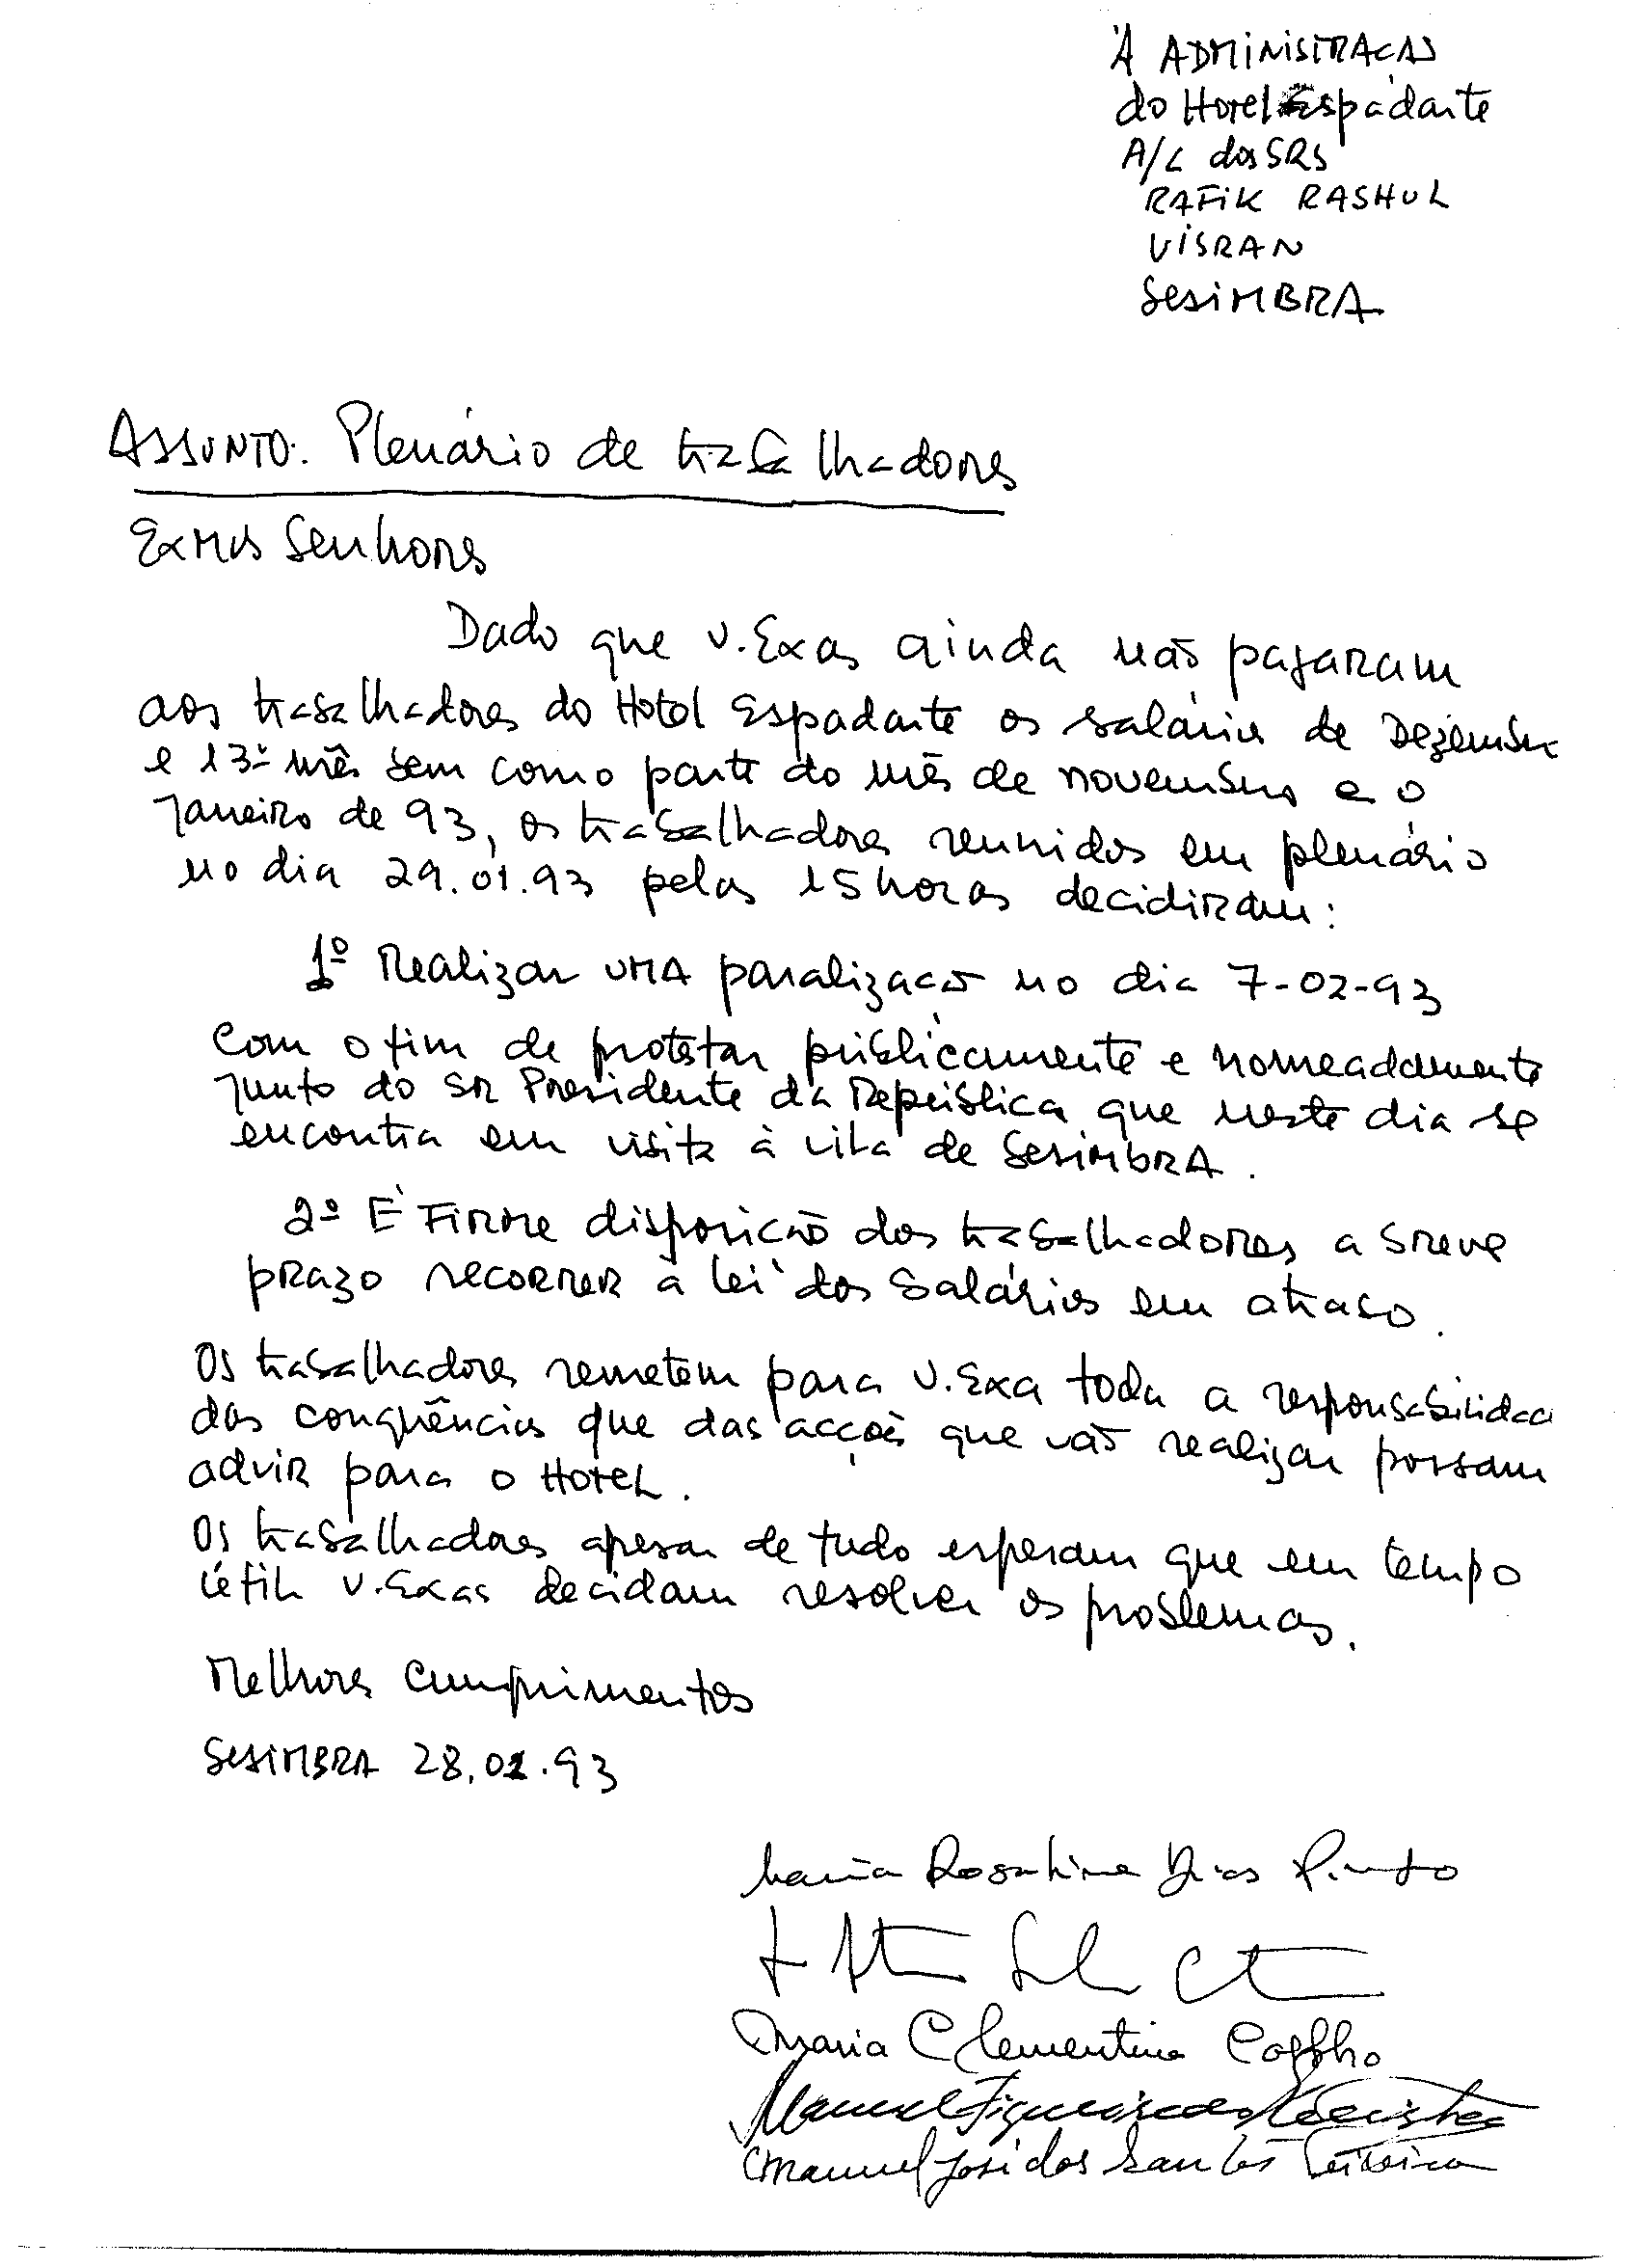 À ADMINISTRAÇÃO
do Hotel Espadarte
A/C dos SRS
RAFIK RASHUL
VISRAN
SesiMBRA
ASSUNTO: Plenário de trabalhadores
Exmos Senhores
Dado que V. Exas ainda não pagaram
aos trabalhadores do Hotel Espadarte os salários de Dezembro
e 13º mês bem como parte do mês de novembro e o
Janeiro de 93, os trabalhadores reunidos em plenário
no dia 29.01.93 pelas 15 horas decidiram:
1º Realizar UMA paralização no dia 7-02-93
com o fim de protestar públicamente e nomeadamente
junto do SR Presidente da República que neste dia se
encontra em visita à vila de SesimbRA.
2º É Firme disposição dos trabalhadores a breve
prazo recorrer à lei dos Salários em atraso.
Os trabalhadores remetem para V. Exa toda a responsabilidade
das conquências que das acções que vão realizar possam
advir para o Hotel.
Os trabalhadores apesar de tudo esperam que em tempo
útil V. Exas decidam resolver os problemas.
Melhores cumprimentos
SesiMBRA 28.01.93
Maria Dias Pinto
Maria Clementina Coelho
Manuel Figueiredo
Manuel José dos Santos Teixeira